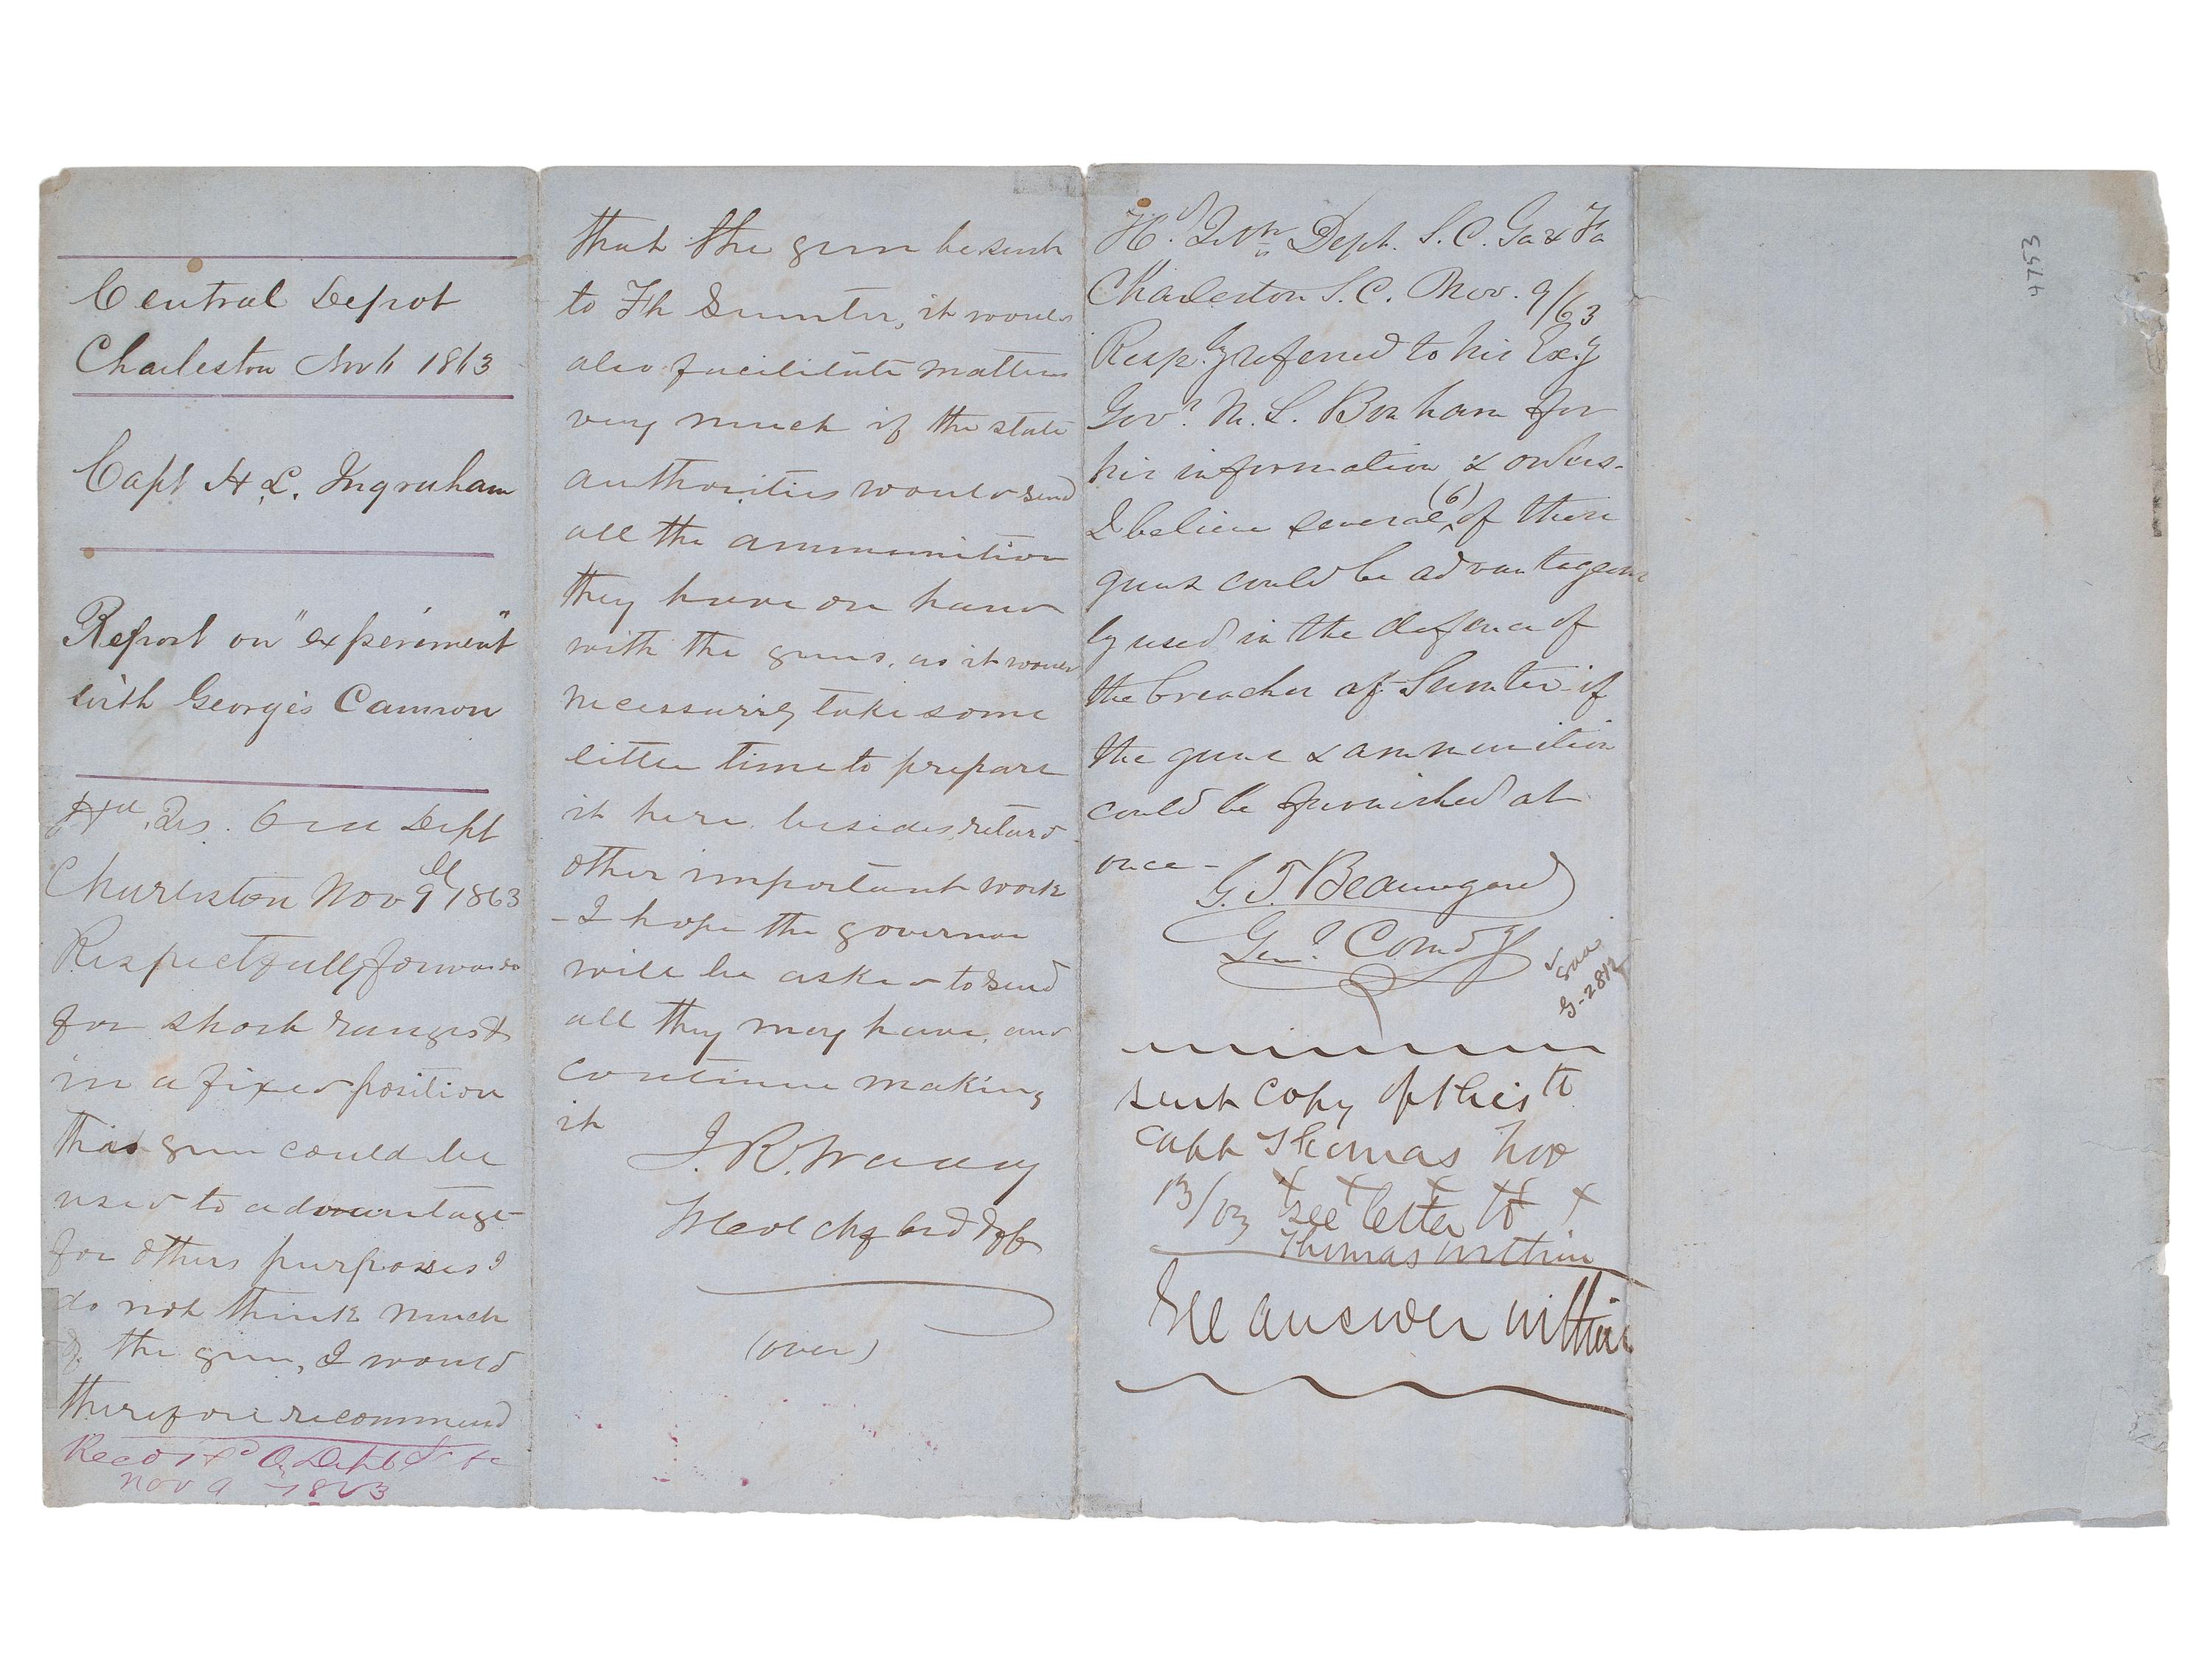 Central Depot
Charleston Nov 6 1863
Capt H L. Ingraham
Report on "experiment"
with George's Cannon
Hd. Qrs. Ord Dept
Charleston Nov 9th 1863
Respectfully forward
for short ranges &
in a fixed position
this gun could be
used to advantage
for others purposes I
do not think much
of the gun, I would
therefore recommend
Recd Dept
Nov 9 1863
that the gun be sent
to Ft Sumter, it would
also facilitate matters
very much if the state
authorities would send
all the ammunition
they have on hand
with the guns, as it would
necessarily take some
little time to prepare
it here, besides, retard
other important work
- I hope the governor
will be asked to send
all they may have, and
continue making
it
J. R. Waddy
Lt Col chf ord Off
(over)
Hd. Qrs Dept. S. C. Ga & Fa
Charleston S. C. Nov. 9/63
Resply referred to his Exy
Govr. M. L. Bonham for
his information & orders-
I believe several (6) of these
guns could be advantageous
ly used in the defence of
the breaches of Sumter if
the guns & ammunition
could be furnished at
once -
G. T. Beauregard
Genl. Comdg
G-2812
sent copy of this to
Capt Thomas Nov
13/63 see letter to
Thomas within
See answer within
4753